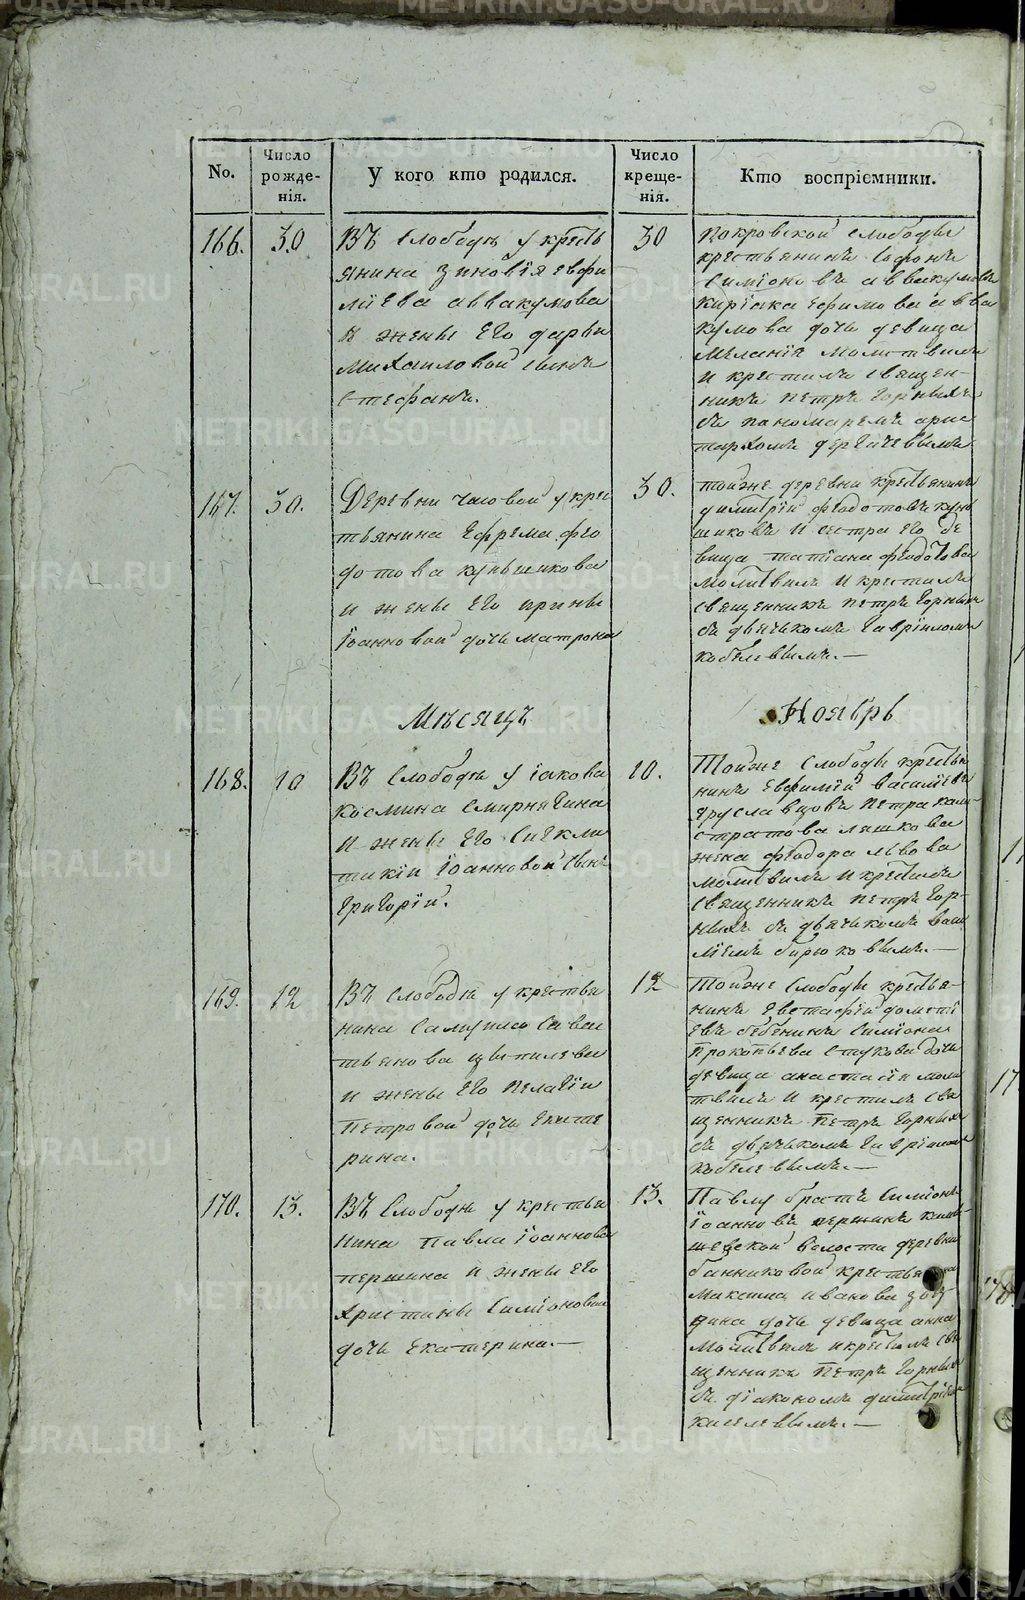 No.
Число рожде-нія.
У кого кто родился.
Число креще-нія.
Кто воспріемники.
166.
30
Въ Слободѣ у кресть
янина Зиновія Евфи
міева Аввакумова
и жены его Дарьи
Михаиловой сынъ
Стефанъ.
30
Покровской слободы
крестьянинъ Софонъ
Симіоновъ Аввакумовъ
Киріака Ефимова Авва
кумова дочь девица
Меланія молитвилъ
и крестилъ священ-
никъ Петръ Горныхъ
съ пономаремъ Арис
тархомъ
167.
30.
Деревни Часовой у крес
тьянина Ефрема Фео
дотова Куньщикова
и жены его Ирины
Іоанновой дочь Матрона
30.
тойже деревни крестьянинъ
Димитрій Феодотовъ Кунь
щиковъ и сестра его де
вица Татіана Феодотова
молитвилъ и крестилъ
священникъ Петръ Горныхъ
съ дьячькомъ Гавріиломъ
Кобелевымъ.—
Мѣсяцъ
Ноябрь
168.
10
Въ Слободѣ у Іакова
Космина Смирнягина
и жены его Сингкли
тикіи Іоанновой сынъ
Григорій.
10.
Тойже Слободы крестья
нинъ Евфимій Василіевъ
Яруславцовъ Петра Кали-
стратова Ляшкова
жена Феодора Львова
молитвилъ и крестилъ
священникъ Петръ Гор-
ныхъ съ дьячькомъ Васи
ліемъ Бирюковымъ.—
169.
12
Въ Слободѣ у крестья
нина Самуила Савас
тьянова Цыпилева
и жены его Пелагіи
Петровой дочь Екате
рина.
12
Тойже Слободы крестья-
нинъ Евстафій Дометі
евъ Симіона
Прокопьева Стукова дочь
девица Анастасія моли
твилъ и крестилъ свя
щенникъ Петръ Горныхъ
съ дьячькомъ Гавріиломъ
Кобелевымъ.—
170.
13.
Въ Слободѣ у крестья
нина Павла Іоаннова
Першина и жены его
Христины Симіоновой
дочь Екатерина.—
13.
Павлу братъ Симіонъ
Іоанновъ Першинъ Камы-
шевской волости деревни
Банниковой крестьянина
Максима Иванова
дочь девица Анна
молитвилъ и крестилъ свя
щенникъ Петръ Горныхъ
съ діакономъ Димитріемъ
Киселевымъ.—
METRIKI.GASO-URAL.RU